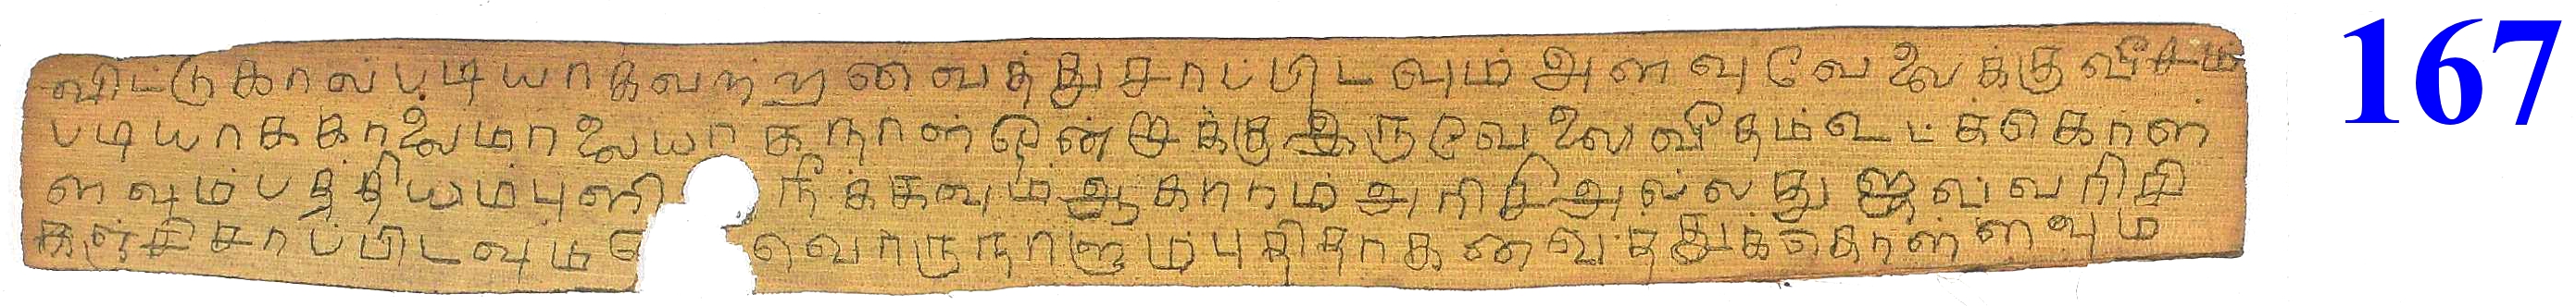 விட்டுகால்படியாகவற்றவைத்துசாப்பிடவும்அளவுவேலைக்குவீசம்
படியாககாலைமாலையாகநாள்ஒன்றுக்குஇருவேலைவீதம்உட்கொள்
ளவும்பத்தியம்புளி நீக்கவும்ஆகாரம்அரிசிஅல்லதுஜவ்வரிசி
கஞ்சிசாப்பிடவும் வொருநாளும்புதிதாகவைத்துக்கொள்ளவும்
167